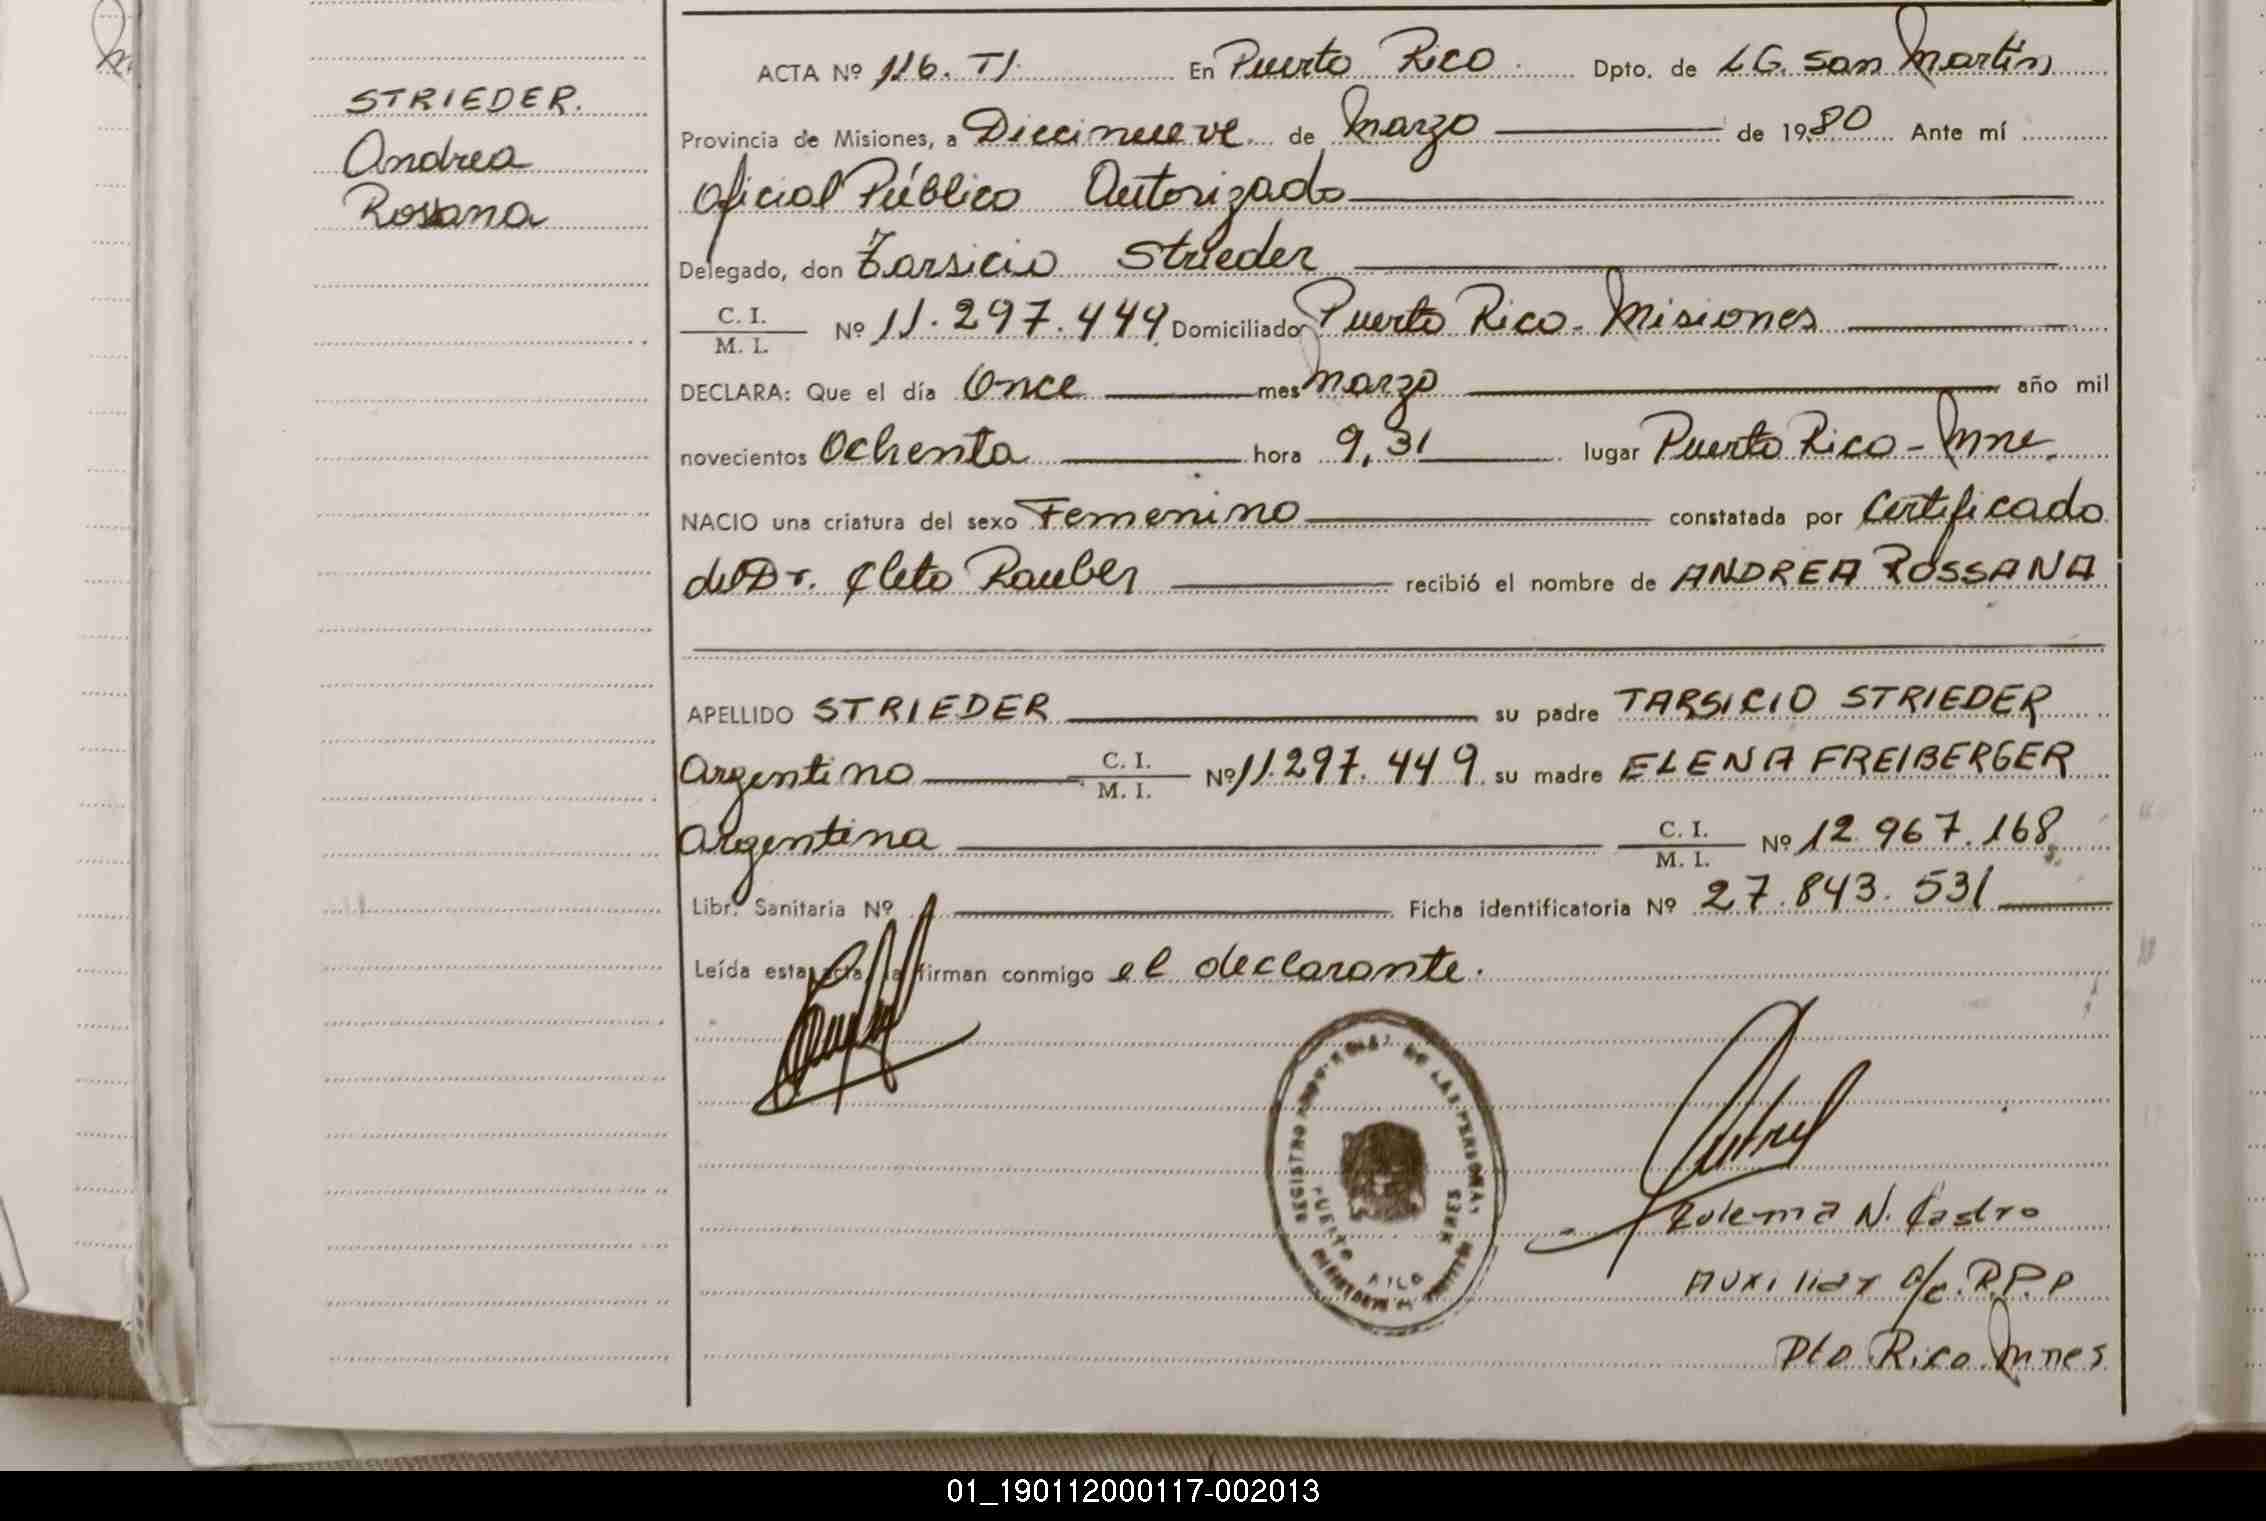 STRIEDER.
Andrea
Rossana
ACTA Nº 116. TI. En Puerto Rico. Dpto. de L.G. San Martín
Provincia de Misiones, a Diecinueve de Marzo de 1980 Ante mí
Oficial Público Autorizado
Delegado, don Tarsicio Strieder
C. I.
M. I. Nº 11.297.449 Domiciliado Puerto Rico - Misiones
DECLARA: Que el día Once mes Marzo año mil
novecientos Ochenta hora 9,31 lugar Puerto Rico - Mne.
NACIO una criatura del sexo Femenino constatada por Certificado
del Dr. Cleto Rauber recibió el nombre de ANDREA ROSSANA
APELLIDO STRIEDER su padre TARSICIO STRIEDER
Argentino C. I. M. I. Nº 11.297.449 su madre ELENA FREIBERGER
Argentina C. I. M. I. Nº 12.967.168
Libr. Sanitaria Nº Ficha identificatoria Nº 27.843.531
Leída esta acta, la firman conmigo el declarante.
DE LAS PERSONAS
REGISTRO
PUERTO RICO
MNES
Zulema N. Castro
Auxiliar a/c. R.P.P
Pto Rico Mnes
01_190112000117-002013